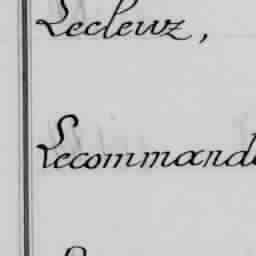 Lecleuz,
Lecommand